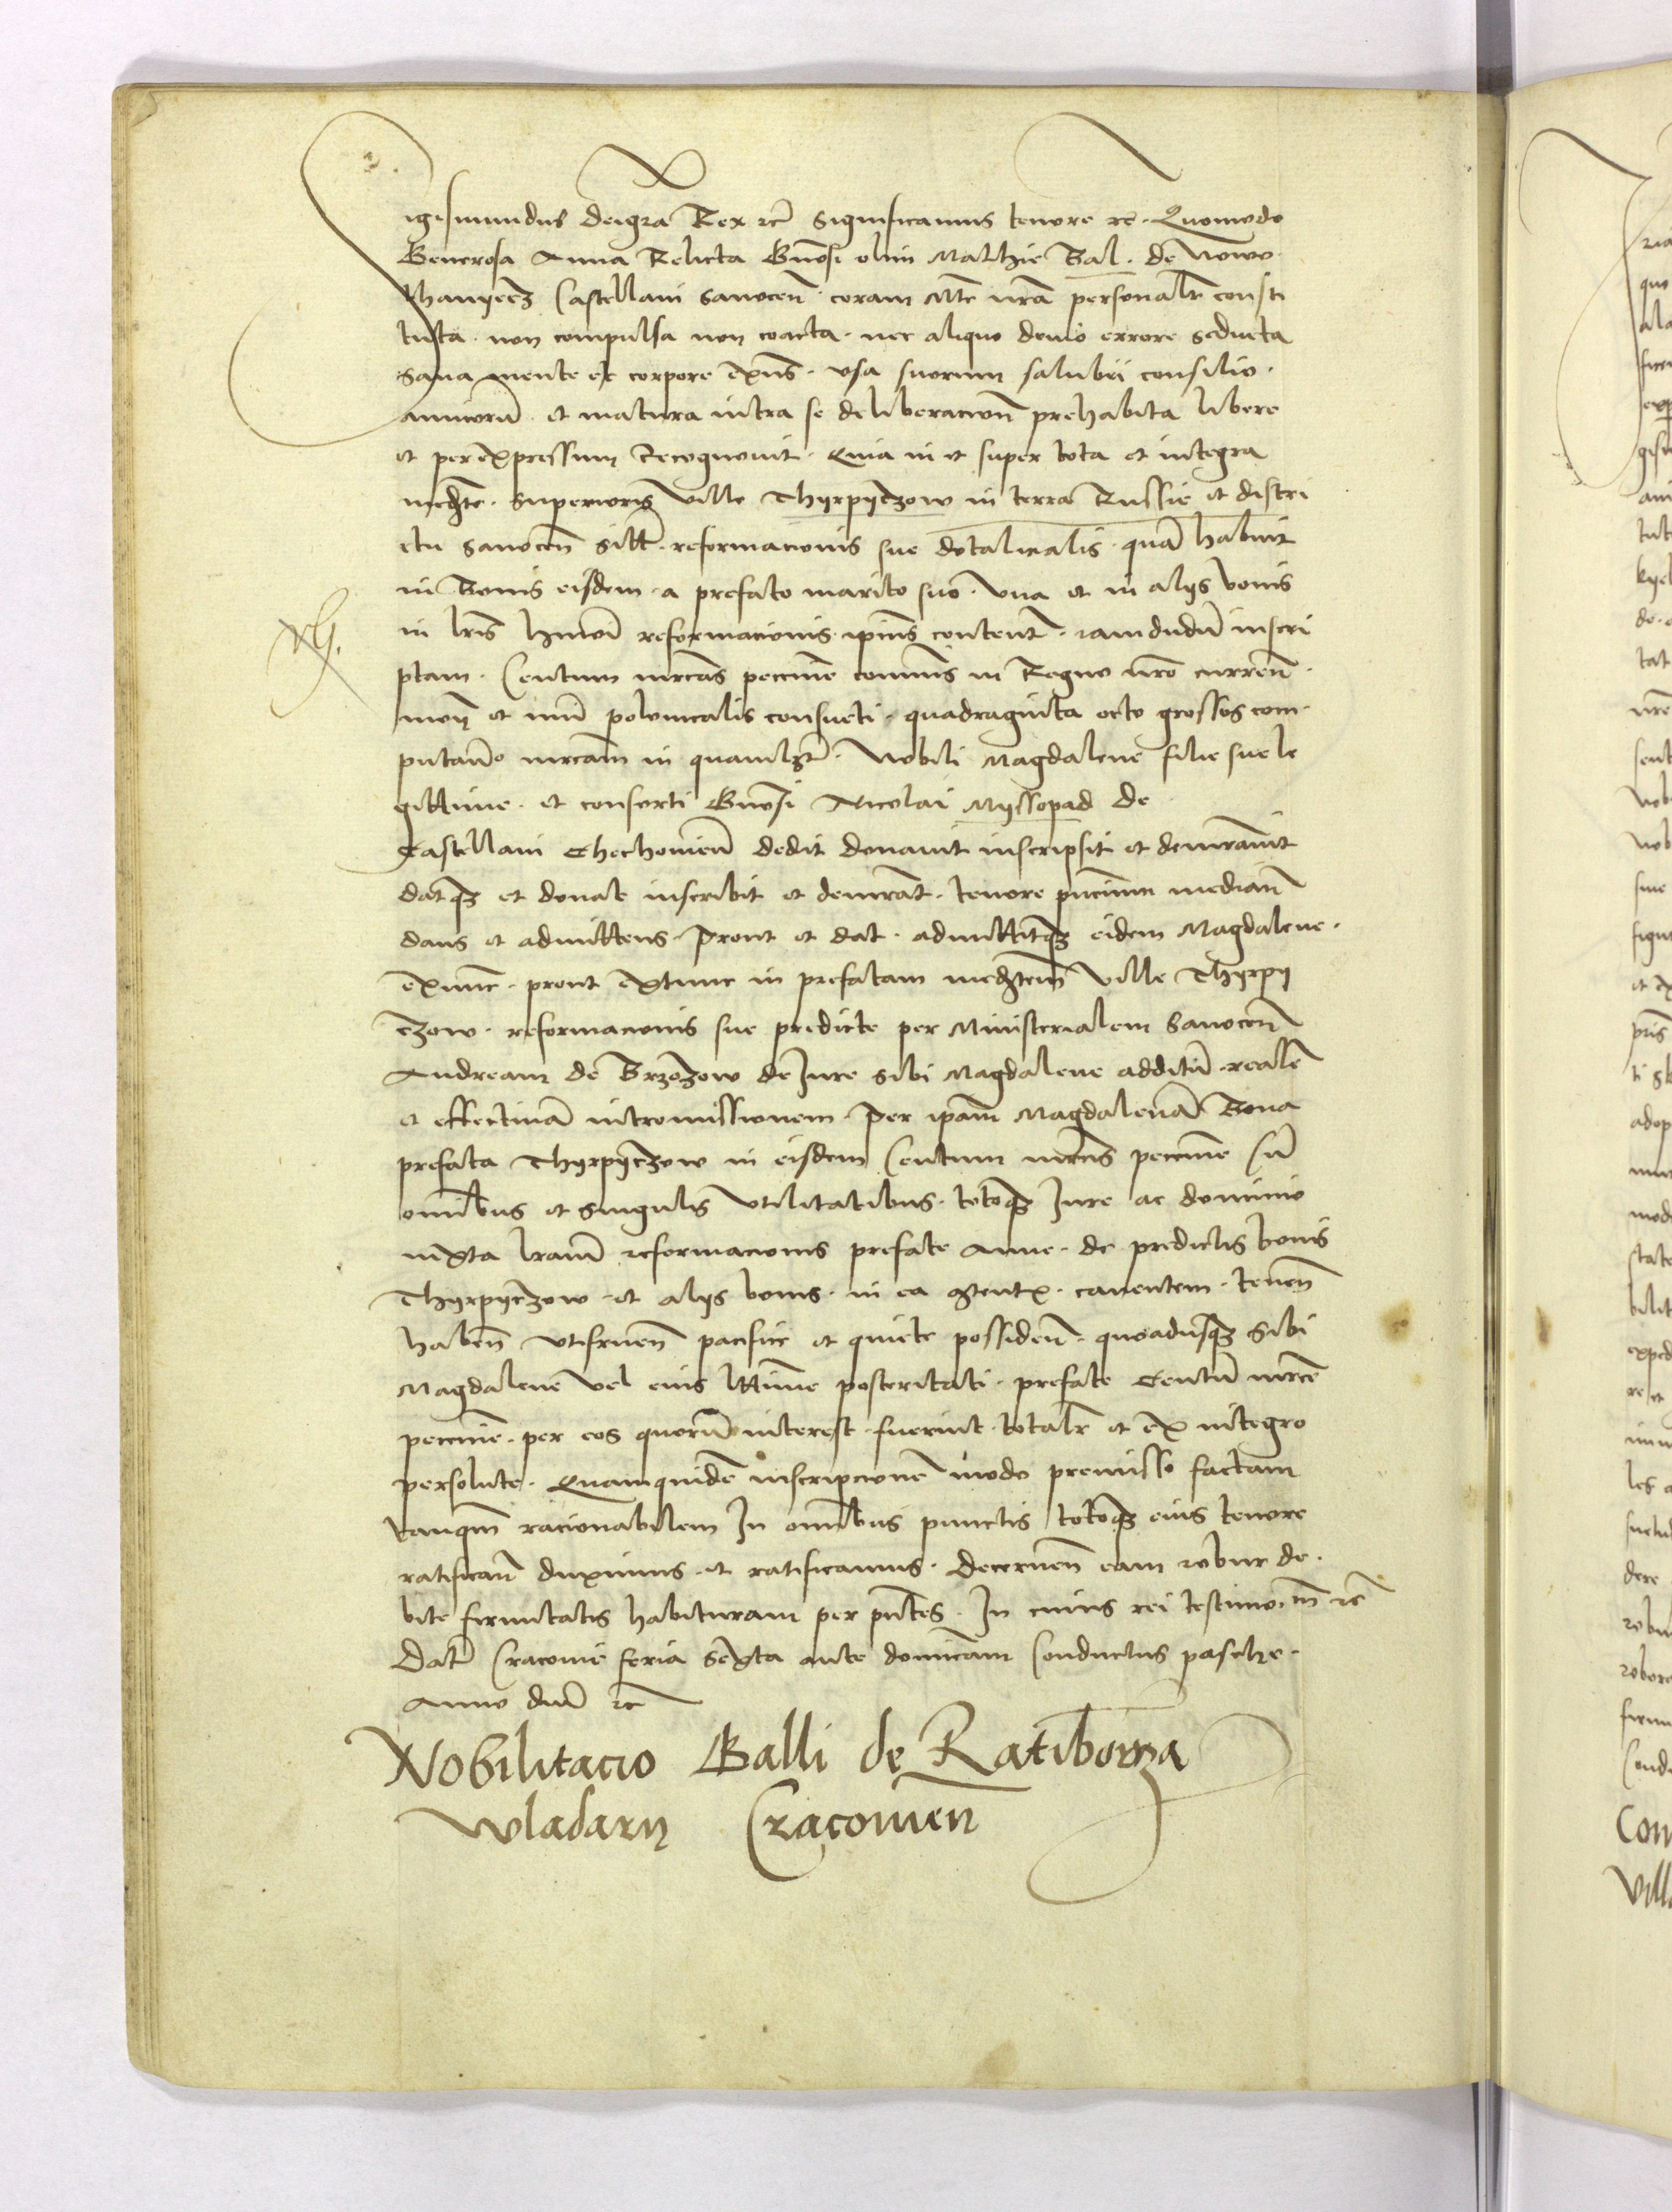 igismundus deigra Rex etc Significamus tenore etc. Quomodo
Generosa Anna Relicta Gnosi olim Mathie Bal. de Nowo
thanyecz Castellani Sanocen. coram Mte nra personalr consti
tuta. non compulsa non coacta. nec aliquo devio errore seducta
Sana mente et corpore exns. usa suorum salubri consilio.
amicorum et matura intra se deliberacion prehabita libere
et per expressum Recognovit. Quia in et super tota et integra
medte. Superioris Ville Thyrpyczow in terra Russie et distri
ctu Sanocen sitt. reformacionis sue dotalicialis. quam habuit
in Bonis eisdem. a prefato marito suo. Una et in alys bonis
in lris hmoi reformacionis ipius content. iamdudum inscri
ptam. Centum mrcas peccunie comunis in Regno nro curren.
mon et num polonicalis consueti. quadraginta octo grossos com
putando mrcam in quamlzt. Nobili Magdalene filie sue le
gittime. et consorti Gnosi Nicolai Myssopad de
Castellani Chechoviensi dedit donavit inscripsit et demravit
datqz et donat inscribit et demrat. tenore pncium median
dans et admittens. prout et dat. admittitqz eidem Magdalene.
exnunc. prout extunc in prefatam medtem Ville Thyrpy
czow. reformacionis sue predicte per Ministerialem Sanocen
Andream de Brzozow de Iure sibi Magdalene additum. realem
et effectivam intromissionem. per ipam Magdalenam Bona
prefata Thyrpyczow in eisdem Centum mrcis peccunie cum
omibus et singulis Utilitatibus. totoqz Iure ac dominio
iuxta lram reformacionis prefate Anne. de predictis bonis
Thyrpyczow et alys bonis. in ea content. canentem. tenen
haben utifruen pacifice et quiete possiden. quoadusqz Sibi
Magdalene vel eius lttime posteritati. prefate Centum mrce
peccunie. per eos quorum interest fuerint totalr et ex integro
persolute. Quamquidem inscripcionem modo premisso factam
tanqm racionabilem In omibus punctis totoqz eius tenore
ratifican duximus. et ratificamus. Decernen eam robur de
bite firmitatis habituram per pntes. In cuius rei testimom etc
Dat Cracovie feria Sexta ante dominicam Conductus pasche.
Anno dni etc
Nobilitacio Galli de Ratiborza
Wladary Cracovien